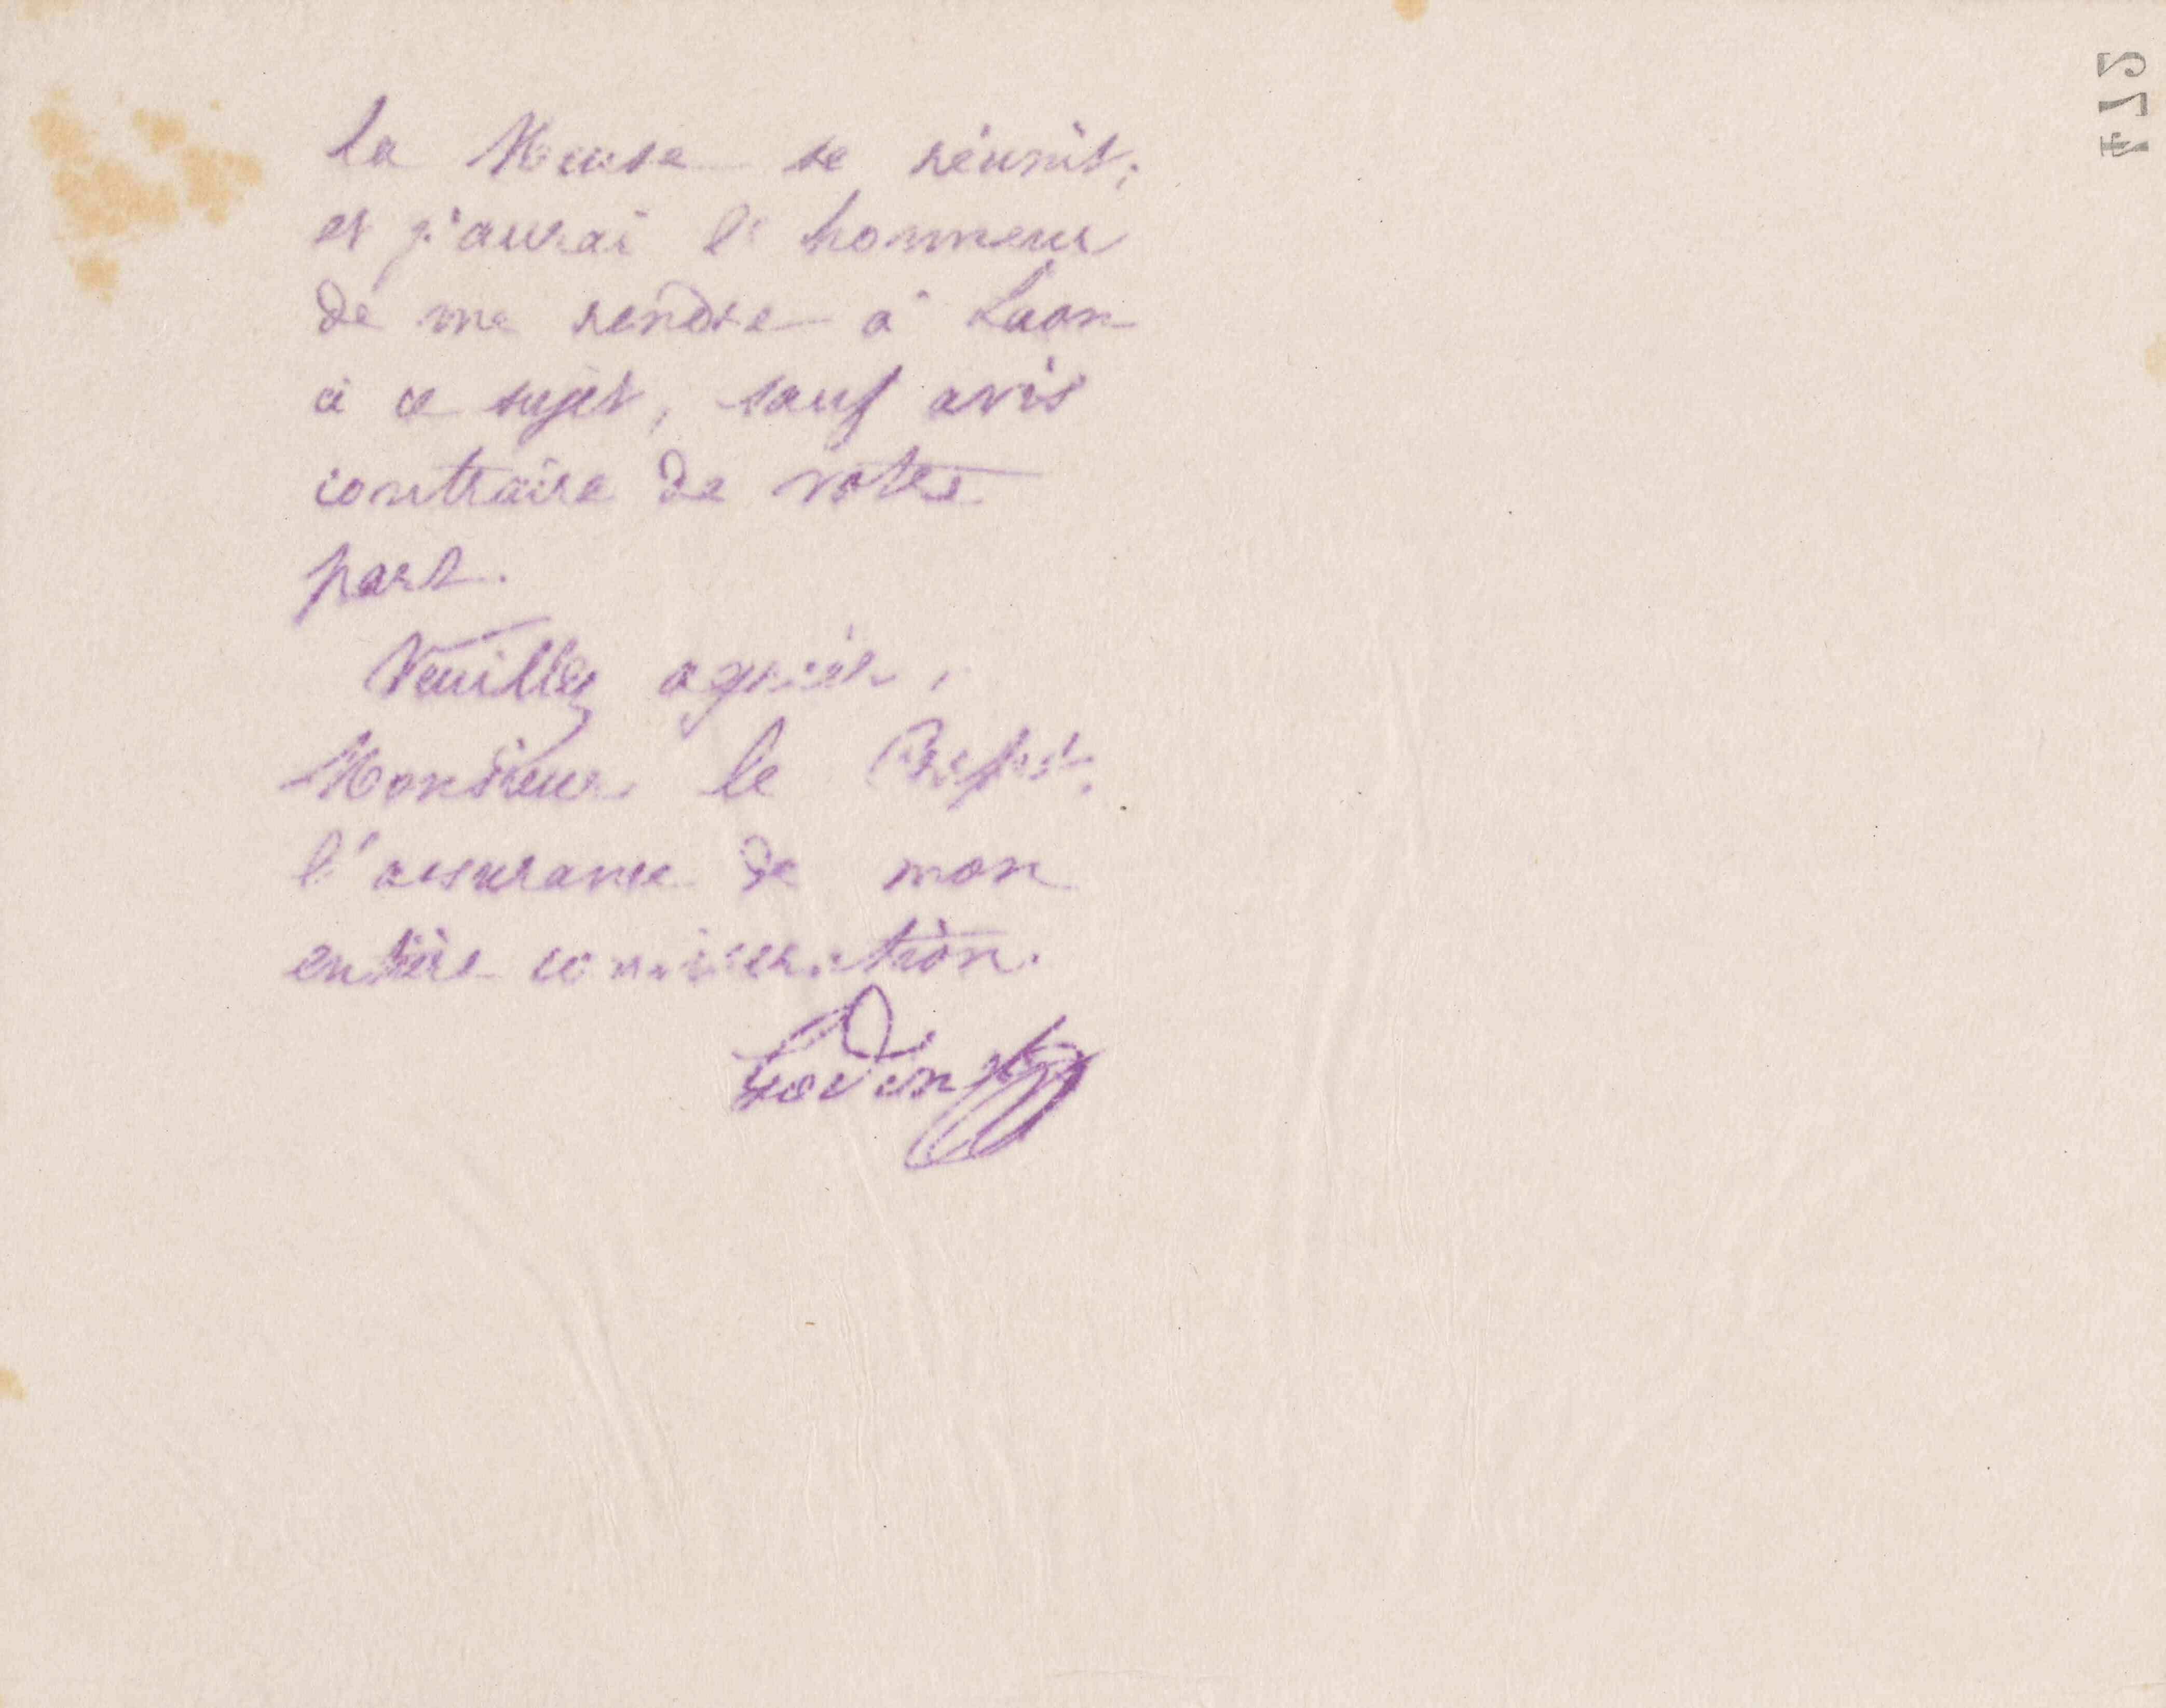 la Meuse se réunit;
et j'aurai l'honneur
de me rendre à Laon
à ce sujet, sauf avis
contraire de votre
part.
Veuillez agréer,
Monsieur le Préfet,
l'assurance de mon
entière considération.
Godin